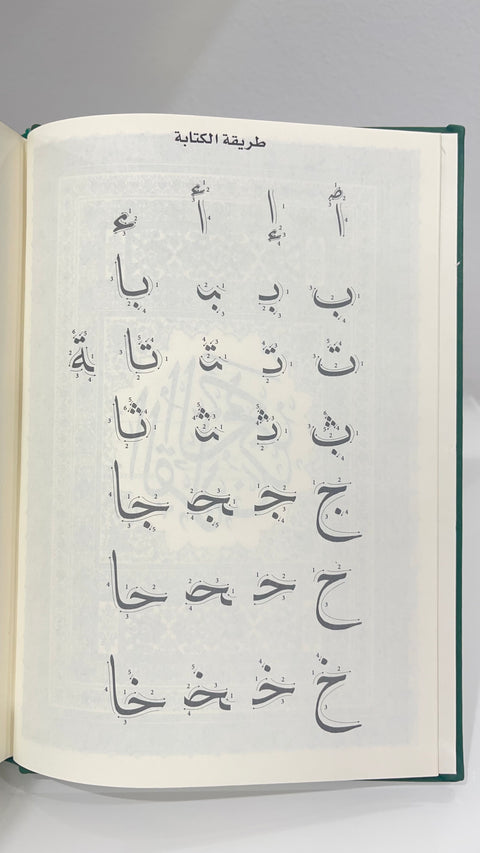 طريقة الكتابة
أ إ أ ء
ب بـ ـبـ با
ت تـ ـتـ تا ـة
ث ثـ ـثـ ثا
ج جـ ـجـ جا
ح حـ ـحـ حا
خ خـ ـخـ خا